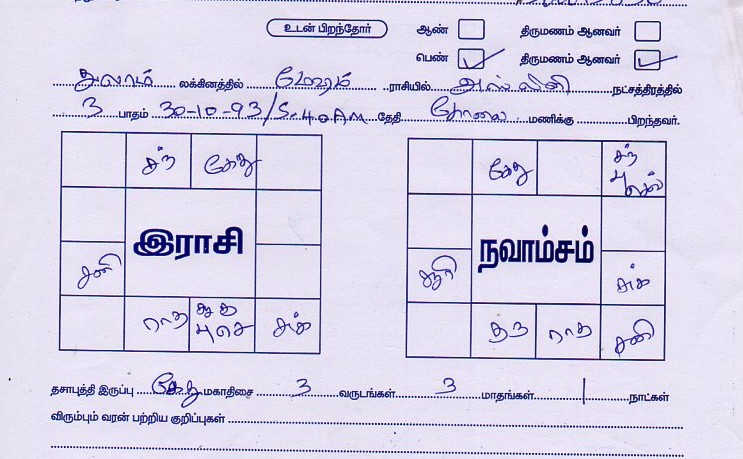 உடன் பிறந்தோர் ஆண் திருமணம் ஆனவர்
பெண் திருமணம் ஆனவர்
துலாம் லக்கினத்தில் மேஷம் ராசியில் அஸ்வினி நட்சத்திரத்தில்
3 பாதம் 30-10-93/5-40AM தேதி காலை மணிக்கு பிறந்தவர்.
சந் கேது
இராசி
சனி
ராகு சுக்
கேது சந்
நவாம்சம்
சூரி சுக்
ராகு சனி
தசாபுத்தி இருப்பு கேது மகாதிசை 3 வருடங்கள் 3 மாதங்கள் 1 நாட்கள்
விரும்பும் வரன் பற்றிய குறிப்புகள்